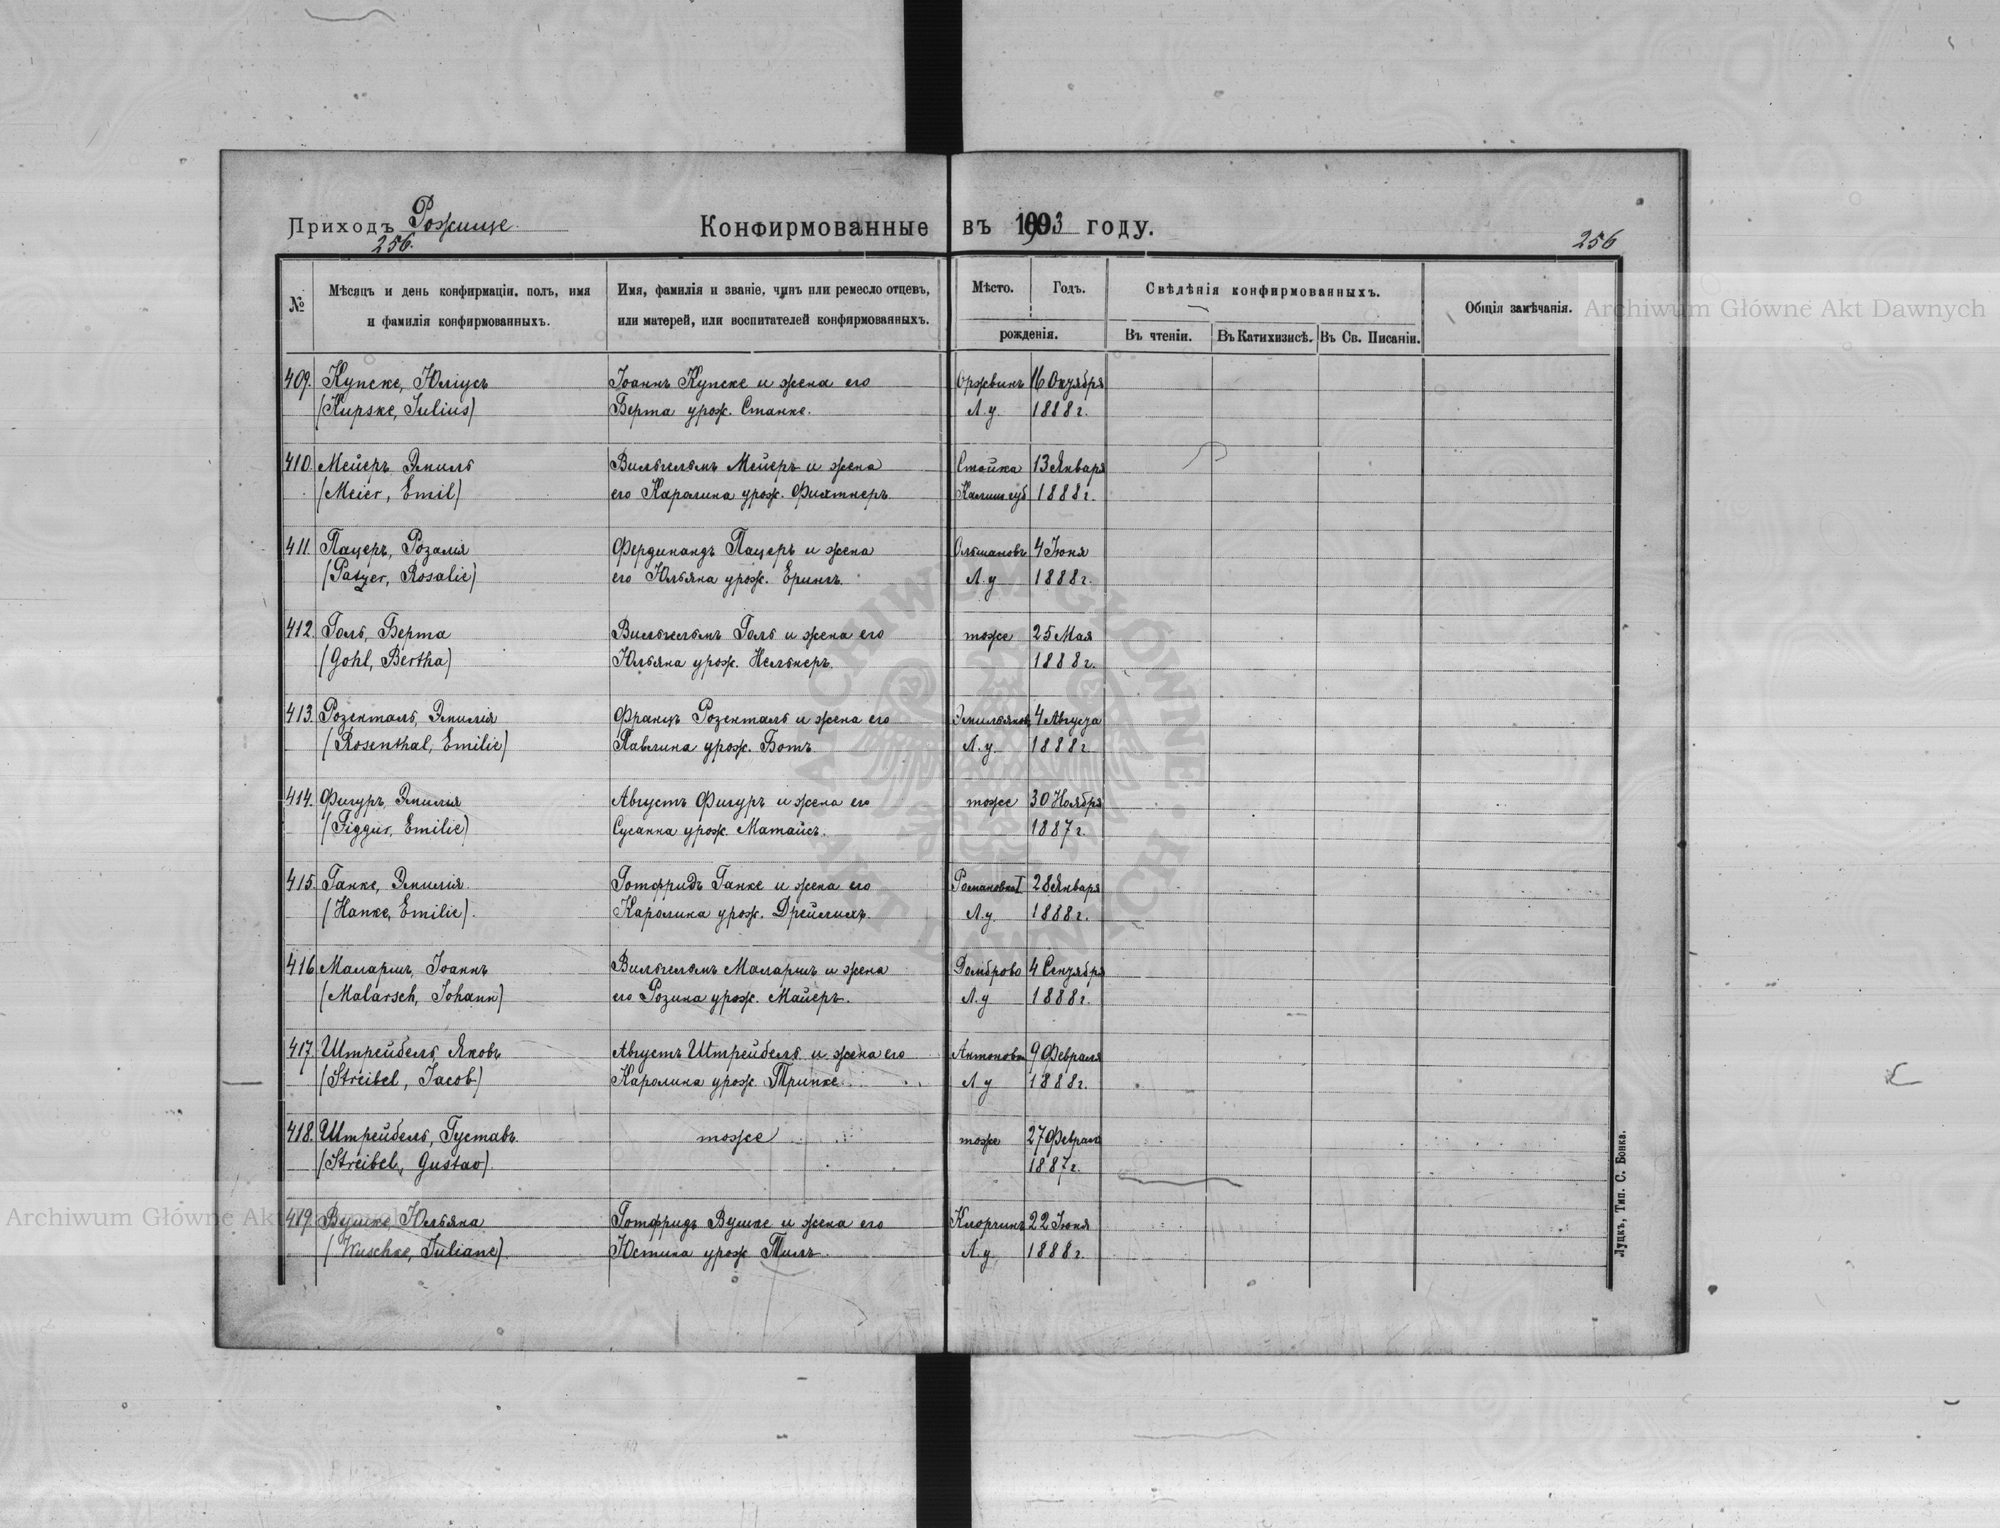 Приходъ Рожище
256
Конфирмованные въ 1903 году.
256
№
Мѣсяцъ и день конфирмаціи, полъ, имя
и фамилія конфирмованныхъ.
Имя, фамилія и званіе, чинъ или ремесло отцевъ,
или матерей, или воспитателей конфирмованныхъ.
Мѣсто. Годъ.
рожденія.
Свѣдѣнія конфирмованныхъ.
Въ чтеніи. Въ Катихизисѣ. Въ Св. Писаніи.
Общія замѣчанія.
409. Купске, Юліусъ Іоаннъ Купске и жена его Оржвинъ 16 Октября
(Kupske, Julius) Берта урож. Станке. Л. у. 1888 г.
410. Мейеръ Эмиль Вильгельмъ Мейеръ и жена Стойка 13 Января
(Meier, Emil) его Каролина урож. Фихтнеръ Калиш губ 1888 г.
411. Пацеръ, Розалія Фердинандъ Пацеръ и жена Ольшановъ 4 Іюня
(Patzer, Rosalie) его Юльяна урож. Ерингъ. Л. у 1888 г.
412. Голь, Берта Вильгельмъ Голь и жена его тоже 25 Мая
(Gohl, Bertha) Юльяна урож. Нельнеръ. 1888 г.
413. Розенталь, Эмилія Францъ Розенталь и жена его Эмильяновъ 4 Августа
(Rosenthal, Emilie) Павлина урож. Ботъ Л. у. 1888 г
414. Фигуръ, Эмилія Августъ Фигуръ и жена его тоже 30 Ноября
(Figgur, Emilie) Сусанна урож. Матайсъ. 1887 г.
415. Ганке, Эмилія Готфридъ Ганке и жена его Романовка I 28 Января
(Hanke, Emilie). Каролина урож. Дрейлихъ. Л. у. 1888 г.
416 Маларшъ, Іоаннъ Вильгельмъ Маларшъ и жена Домброво 4 Сентября
(Malarsch, Johann) его Розина урож. Майеръ. Л. у 1888 г.
417. Штрейбель, Яковъ Августъ Штрейбель и жена его Антоновка 9 Февраля
(Streibel, Jacob) Каролина урож. Трипке. Л. у 1888 г.
418. Штрейбель, Густавъ. тоже тоже 27 Февраля
(Streibel, Gustav). 1887 г.
419. Вушке, Юльяна Готфридъ Вушке и жена его Клорчинъ 22 Іюня
(Wuschke, Juliane). Юстина урож. Тилъ. Л. у. 1888 г.
Луцкъ, Тип. С. Бонка.
Archiwum Główne Akt Dawnych
Archiwum Główne Akt Dawnych
ARCHIWUM GŁÓWNE AKT DAWNYCH